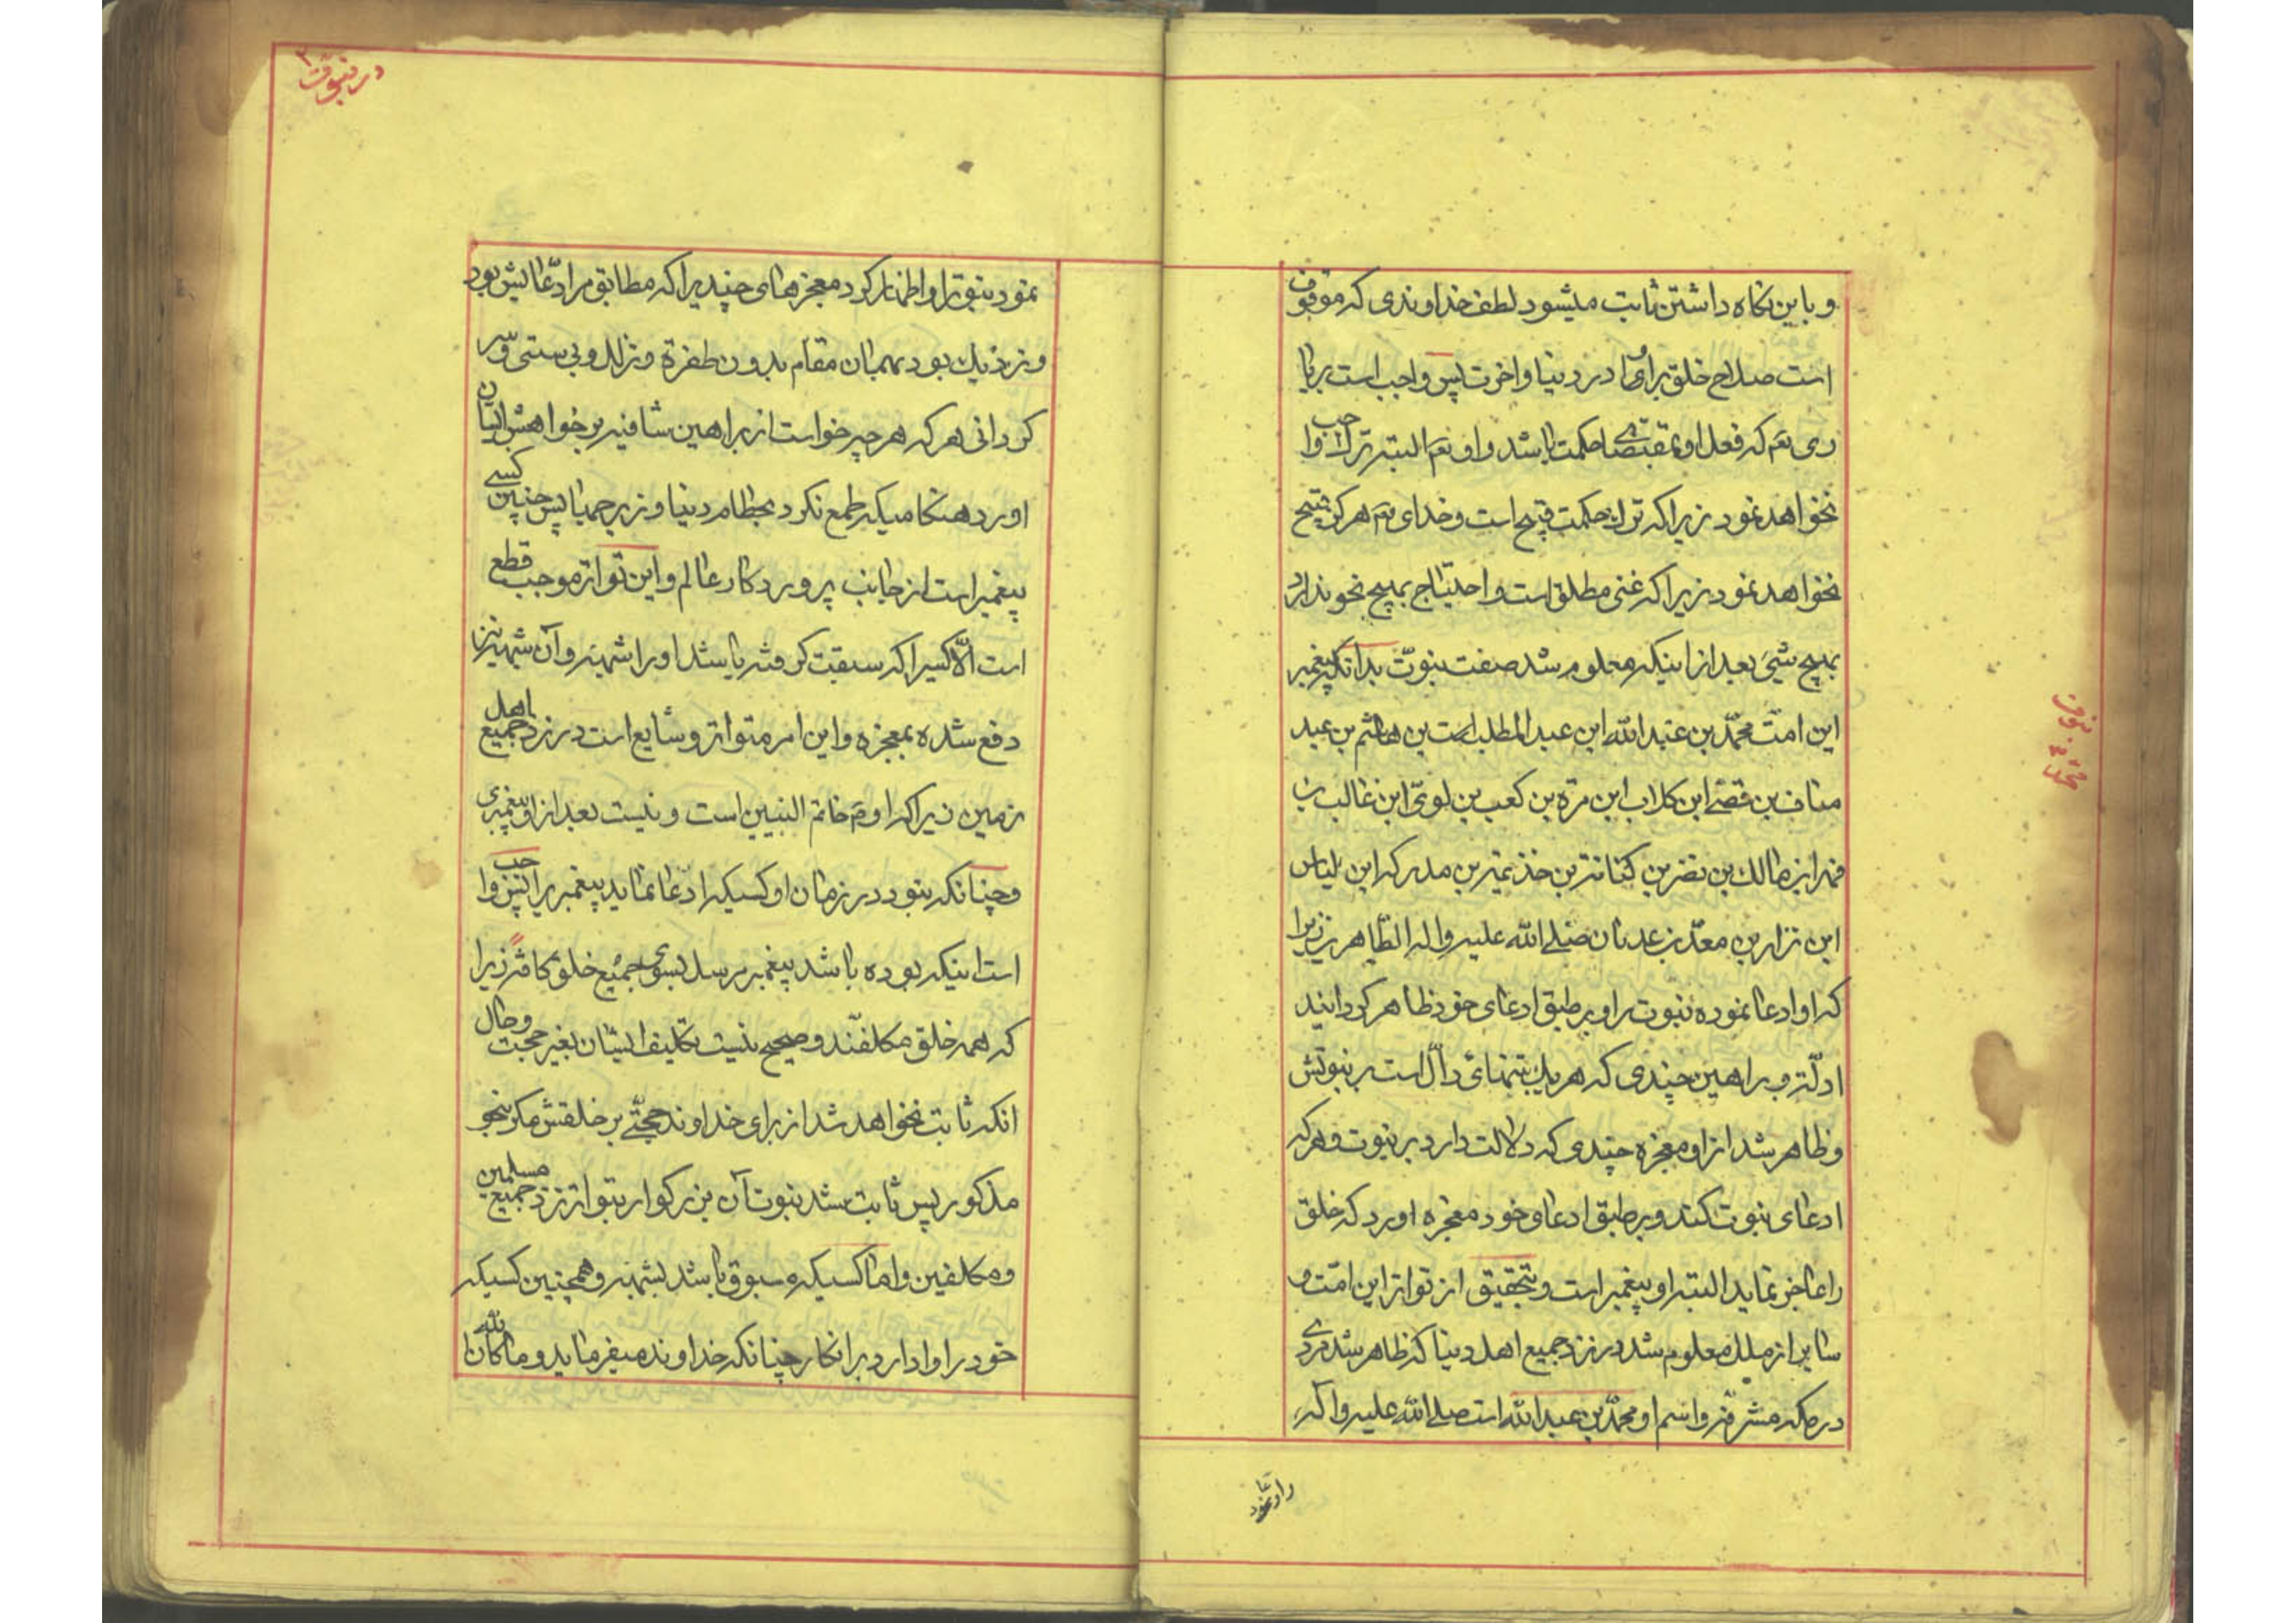 و باین نکاه داشتن ثابت میشود لطف خداوندی که موقوف
است صلاح خلق برای او در دنیا و اخرت پس واجب است بر با
ری تعم که فعل او بمقتضای حکمت باشد و او تعم البته ترک واجب
نخواهد نمود زیرا که ترک حکمت قبیح است و خدای تعم هرکز قبیح
نخواهد نمود زیرا که غنی مطلق است و احتیاج بهیچ نحو ندارد
بهیچ شیئ بعد از اینکه معلوم شد صفت نبوّت بدانکه پیغمبر
این امّت محمّد بن عبد الله ابن عبد المطلب است بن هاشم بن عبد
مناف بن قصے ابن کلاب ابن مرّه بن کعب بن لویّ ابن غالب بن
فهر ابن مالک بن نضر بن کنانة بن خذیمة بن مدرکه ابن الیاس
ابن نزار بن معدّ بن عدنان صلے الله علیه واله الطّاهرین زیرا
که او ادعا نموده نبوت را و بر طبق ادعای خود ظاهر کردانید
ادلّه و براهین چندی که هر یک بتنهائی دالّ است بر نبوتش
و ظاهر شد از او معجزه چندی که دلالت دارد بر نبوت و هر که
ادعای نبوت کند و بر طبق ادعای خود معجزه اورد که خلق
را عاجز نماید البته او پیغمبر است و بتحقیق از تواتر این امّت و
سایر از ملل معلوم شد در نزد جمیع اهل دنیا که ظاهر شد مردے
در مکه مشرفه و اسم او محمّد بن عبد الله است صلے الله علیه و آله
نبوت
محمّد ص
را و ادّعا نمود
در نبوّت
نمود نبوّترا و اظهار کرد معجزهای چندیرا که مطابق مر ادّعایش بود
و نزدیک بود بهمان مقام بدون طفره و تزلزل و بی سستی و سر
کردانی هر که هر چه خواست از براهین شافیه بر خواهش ایشان
اورد هنکامیکه طمع نکرد بحطام دنیا و زیر جمیا پس چنین کسے
پیغمبر است از جانب پروردکار عالم و این تواتر موجب قطع
است الّا کسیرا که سبقت کرفته باشد او را شبهه و آن شبهه نیز
دفع شده بمعجزه و این امر متواتر و شایع است در نزد جمیع اهل
زمین زیرا که او م خاتم النبیین است و نیست بعد از او پیغمبری
و چنانکه نبود در زمان او کسیکه ادّعا نماید پیغمبریرا نیز واجب
است اینکه بوده باشد پیغمبر مرسل بسوی جمیع خلق کافّه زیرا
که همه خلق مکلفند و صحیح نیست تکلیف ایشان بغیر حجت و حال
انکه ثابت نخواهد شد از برای خداوند حجّتے بر خلقش مکر بنحو
مذکور پس ثابت شد نبوت آن بزرکوار بتواتر نزد جمیع مسلمین
و مکلفین و اما کسیکه مسبوق باشد بشبهه و همچنین کسیکه
خود را وادارد بر انکار چنانکه خداوند میفرماید و ما کان الله